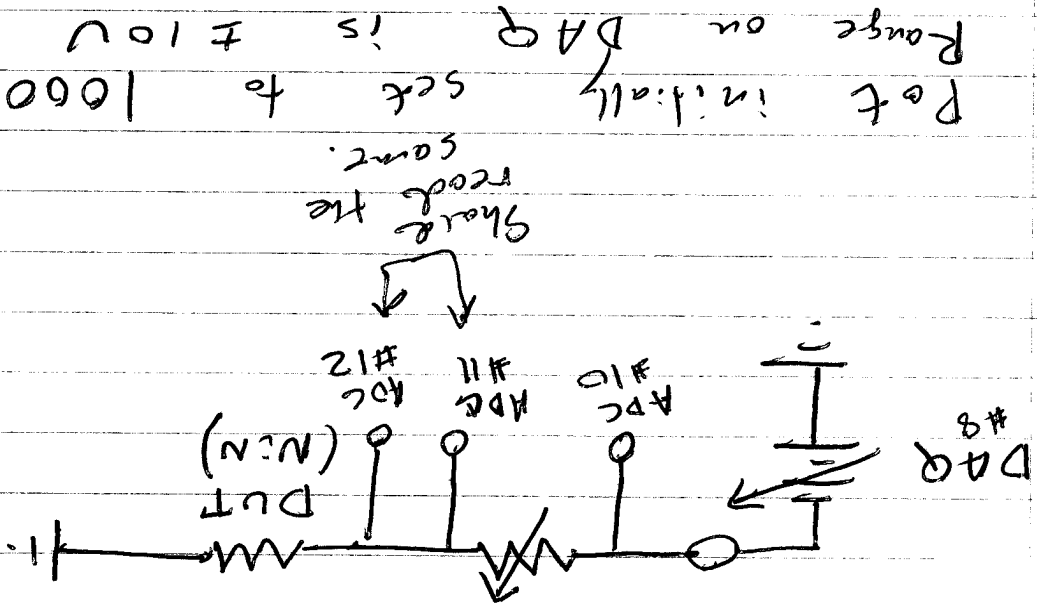 DUT
(NiN)
DAQ
#8
ADC
#10
ADC
#11
ADC
#12
Should
read the
same.
Pot initially set to 1000
Range on DAQ is ±10V